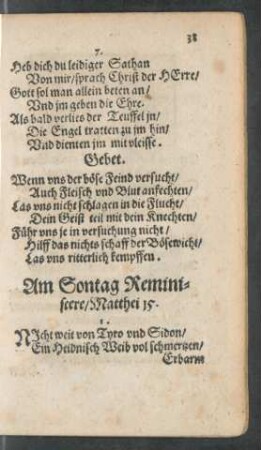 38
7.
Heb dich du leidiger Sathan
Von mir/ sprach Christ der HErre/
Gott sol man allein beten an/
Vnd jm geben die Ehre.
Als bald verlies der Teuffel jn/
Die Engel tratten zu jm hin/
Vnd dienten jm mit vleisse.
Gebet.
Wenn vns der böse Feind versucht/
Auch Fleisch vnd Blut anfechten/
Las vns nicht schlagen in die Flucht/
Dein Geist teil mit dein Knechten/
Führ vns je in versuchung nicht/
Hilff das nichts schaff der Bösewicht/
Las vns ritterlich kempffen.
Am Sontag Remini-
scere/Matthei 15.
1.
NIcht weit von Tyro vnd Sidon/
Ein Heidnisch Weib vol schmertzen/
Erbarm